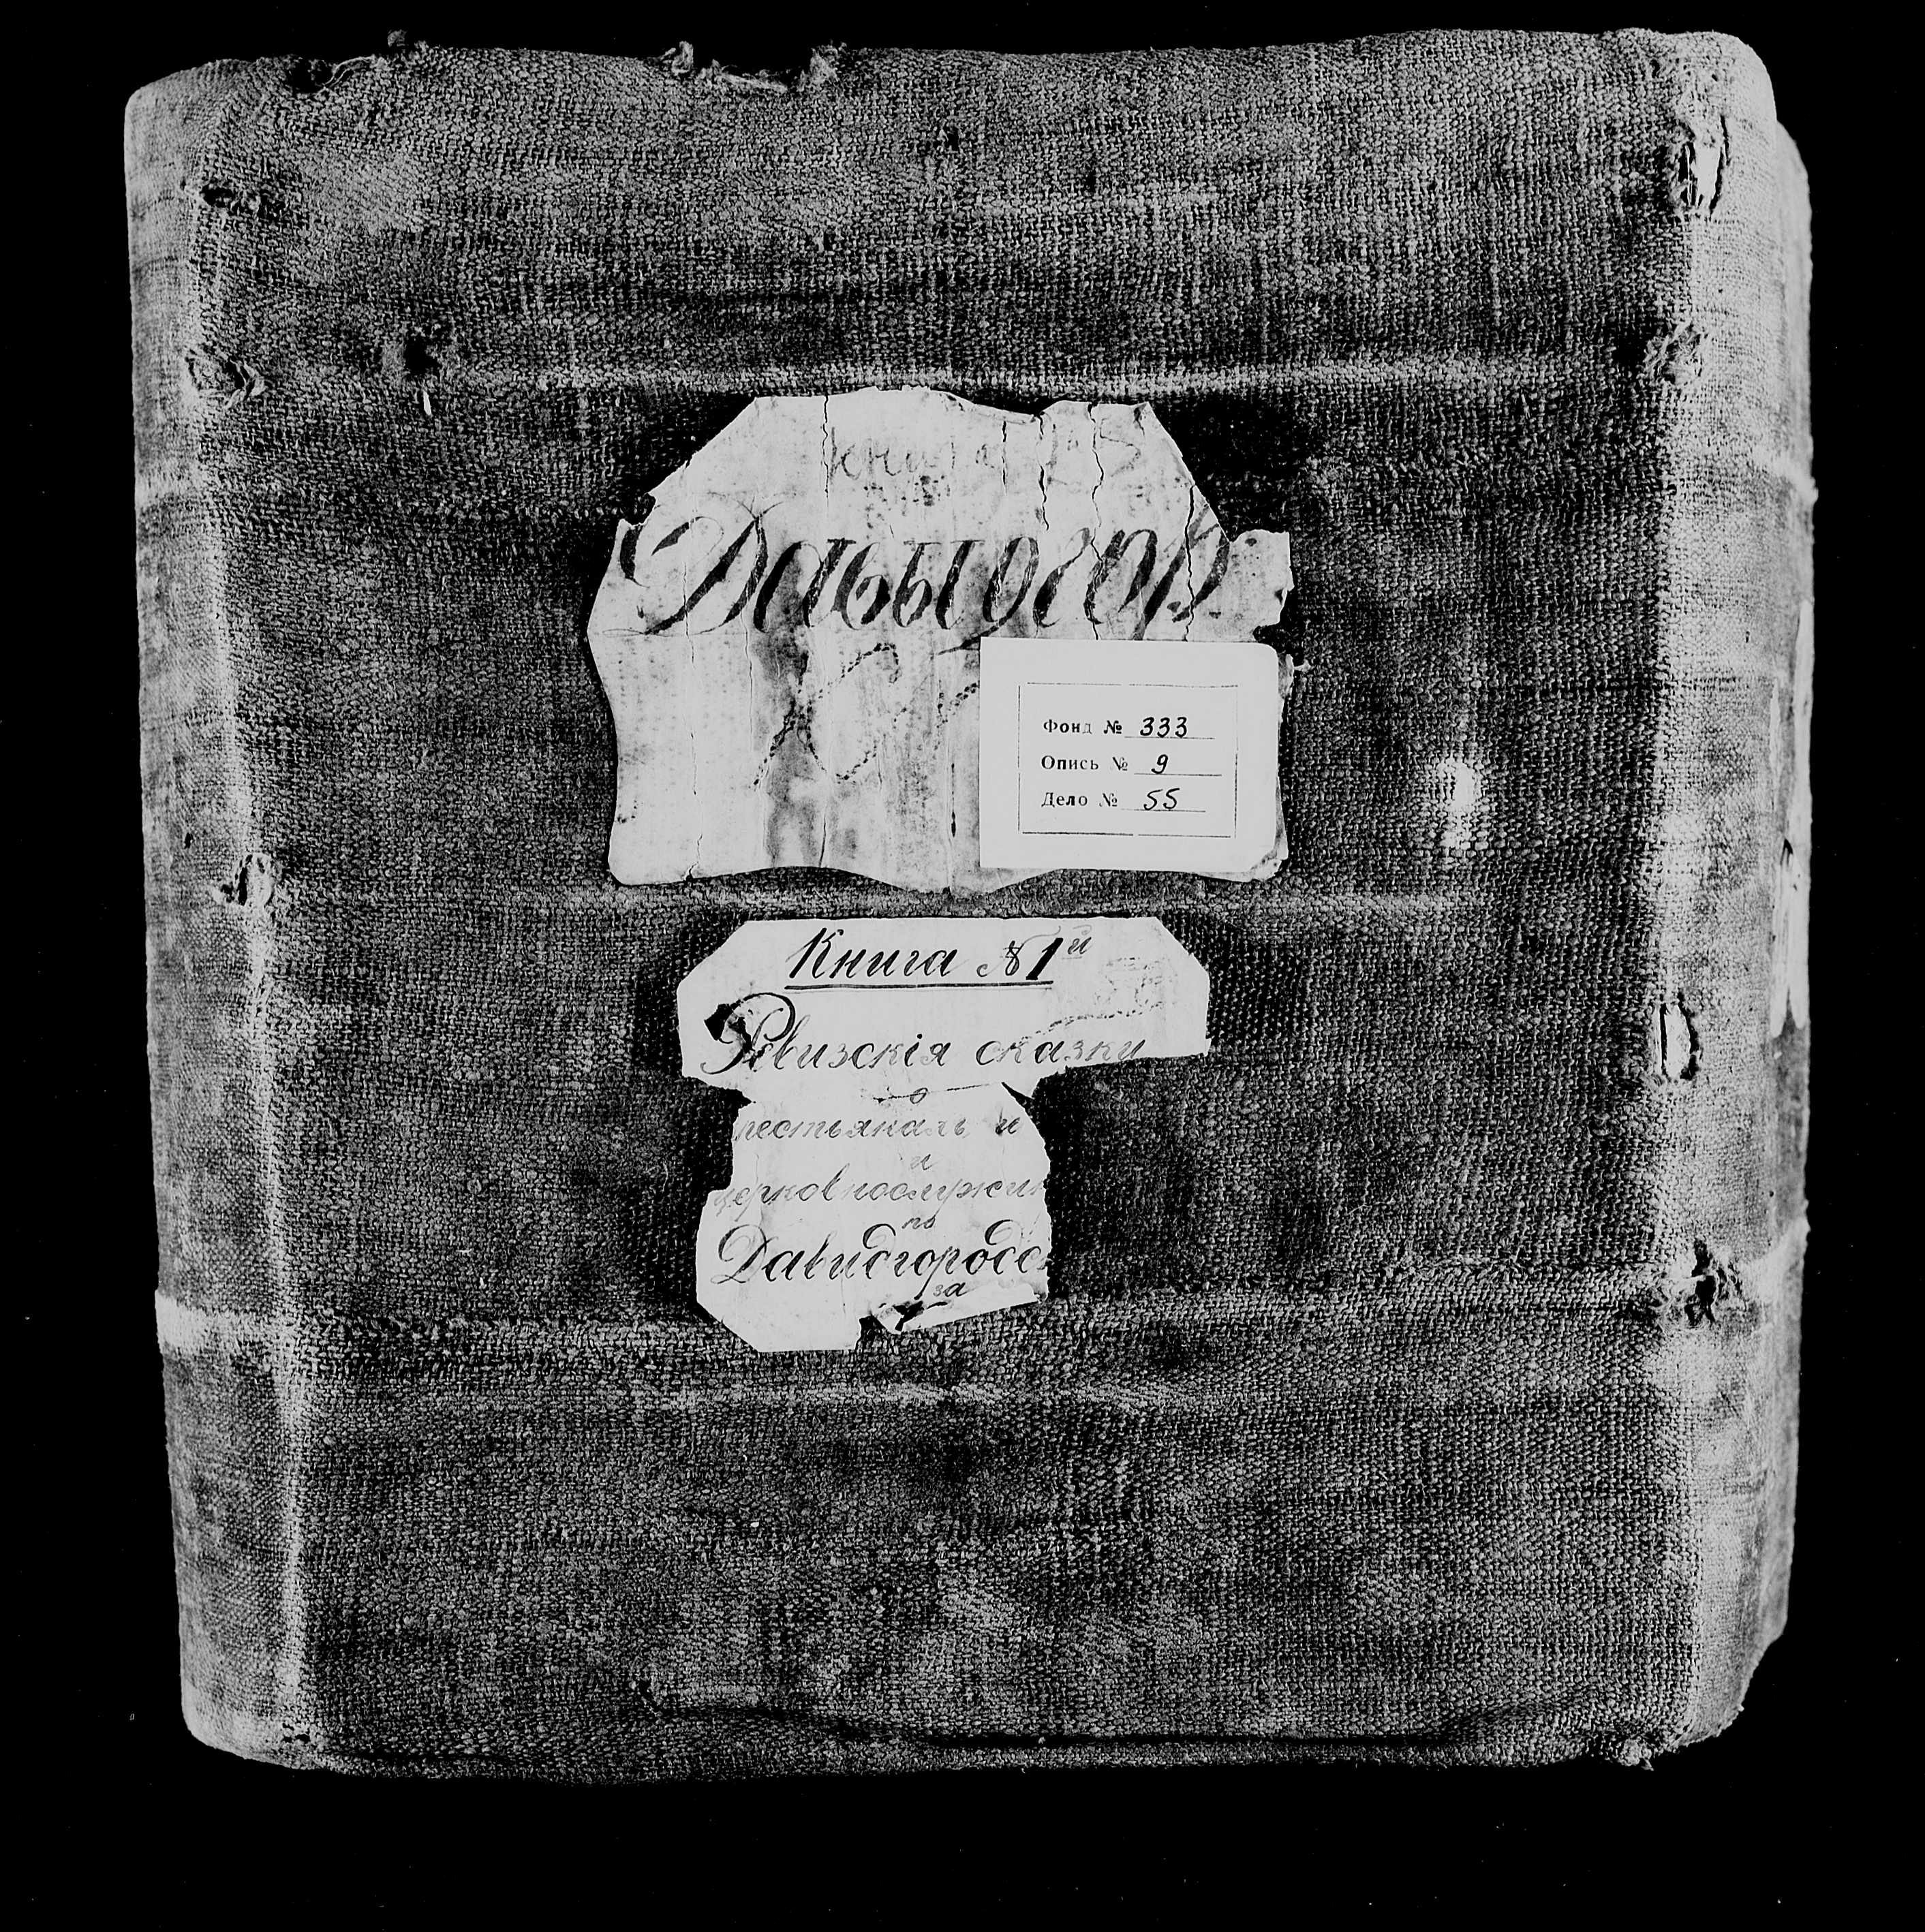 книга
Давыдгор
Фонд № 333
Опись № 9
Дело № 55
Книга №1й
Ревизскія сказки
о
рестьянахъ и
и
церковнослужи
по
Давидгородс
за